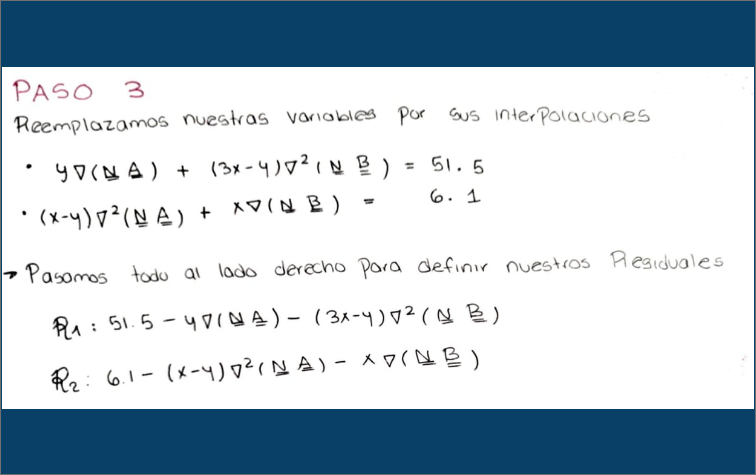 PASO 3
Reemplazamos nuestras variables por sus interpolaciones
• y∇(N A) + (3x-y)∇²(N B) = 51.5
• (x-y)∇²(N A) + x∇(N B) = 6.1
→ Pasamos todo al lado derecho para definir nuestros Residuales
R1: 51.5 - y∇(N A) - (3x-y)∇²(N B)
R2: 6.1 - (x-y)∇²(N A) - x∇(N B)